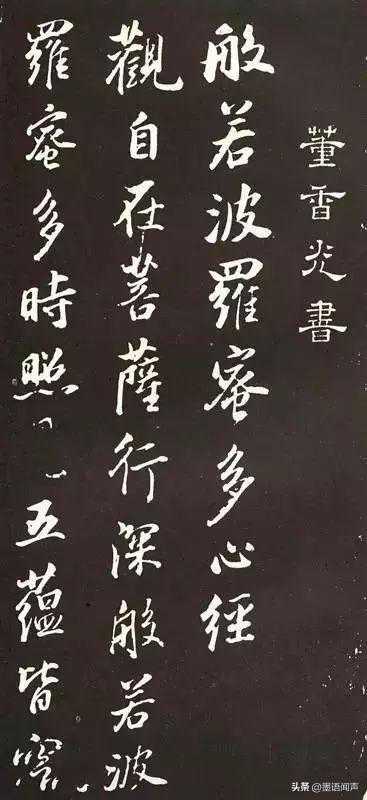 董香光書
般若波羅蜜多心經
觀自在菩薩行深般若波
羅蜜多時照五蘊皆
头条 @墨语闻声